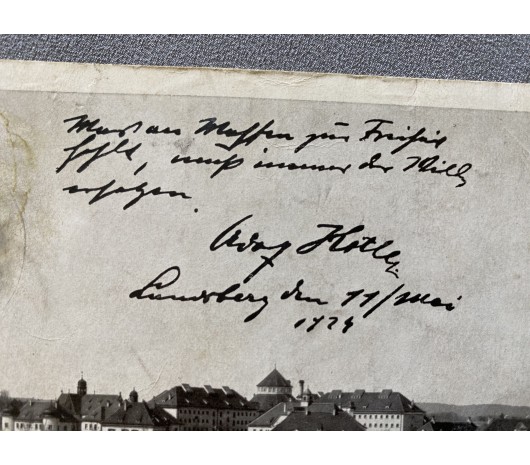 Was an Waffen zur Freiheit
fehlt, muß immer der Wille
ersetzen.
Adolf Hitler
Landsberg den 11/Mai
1924